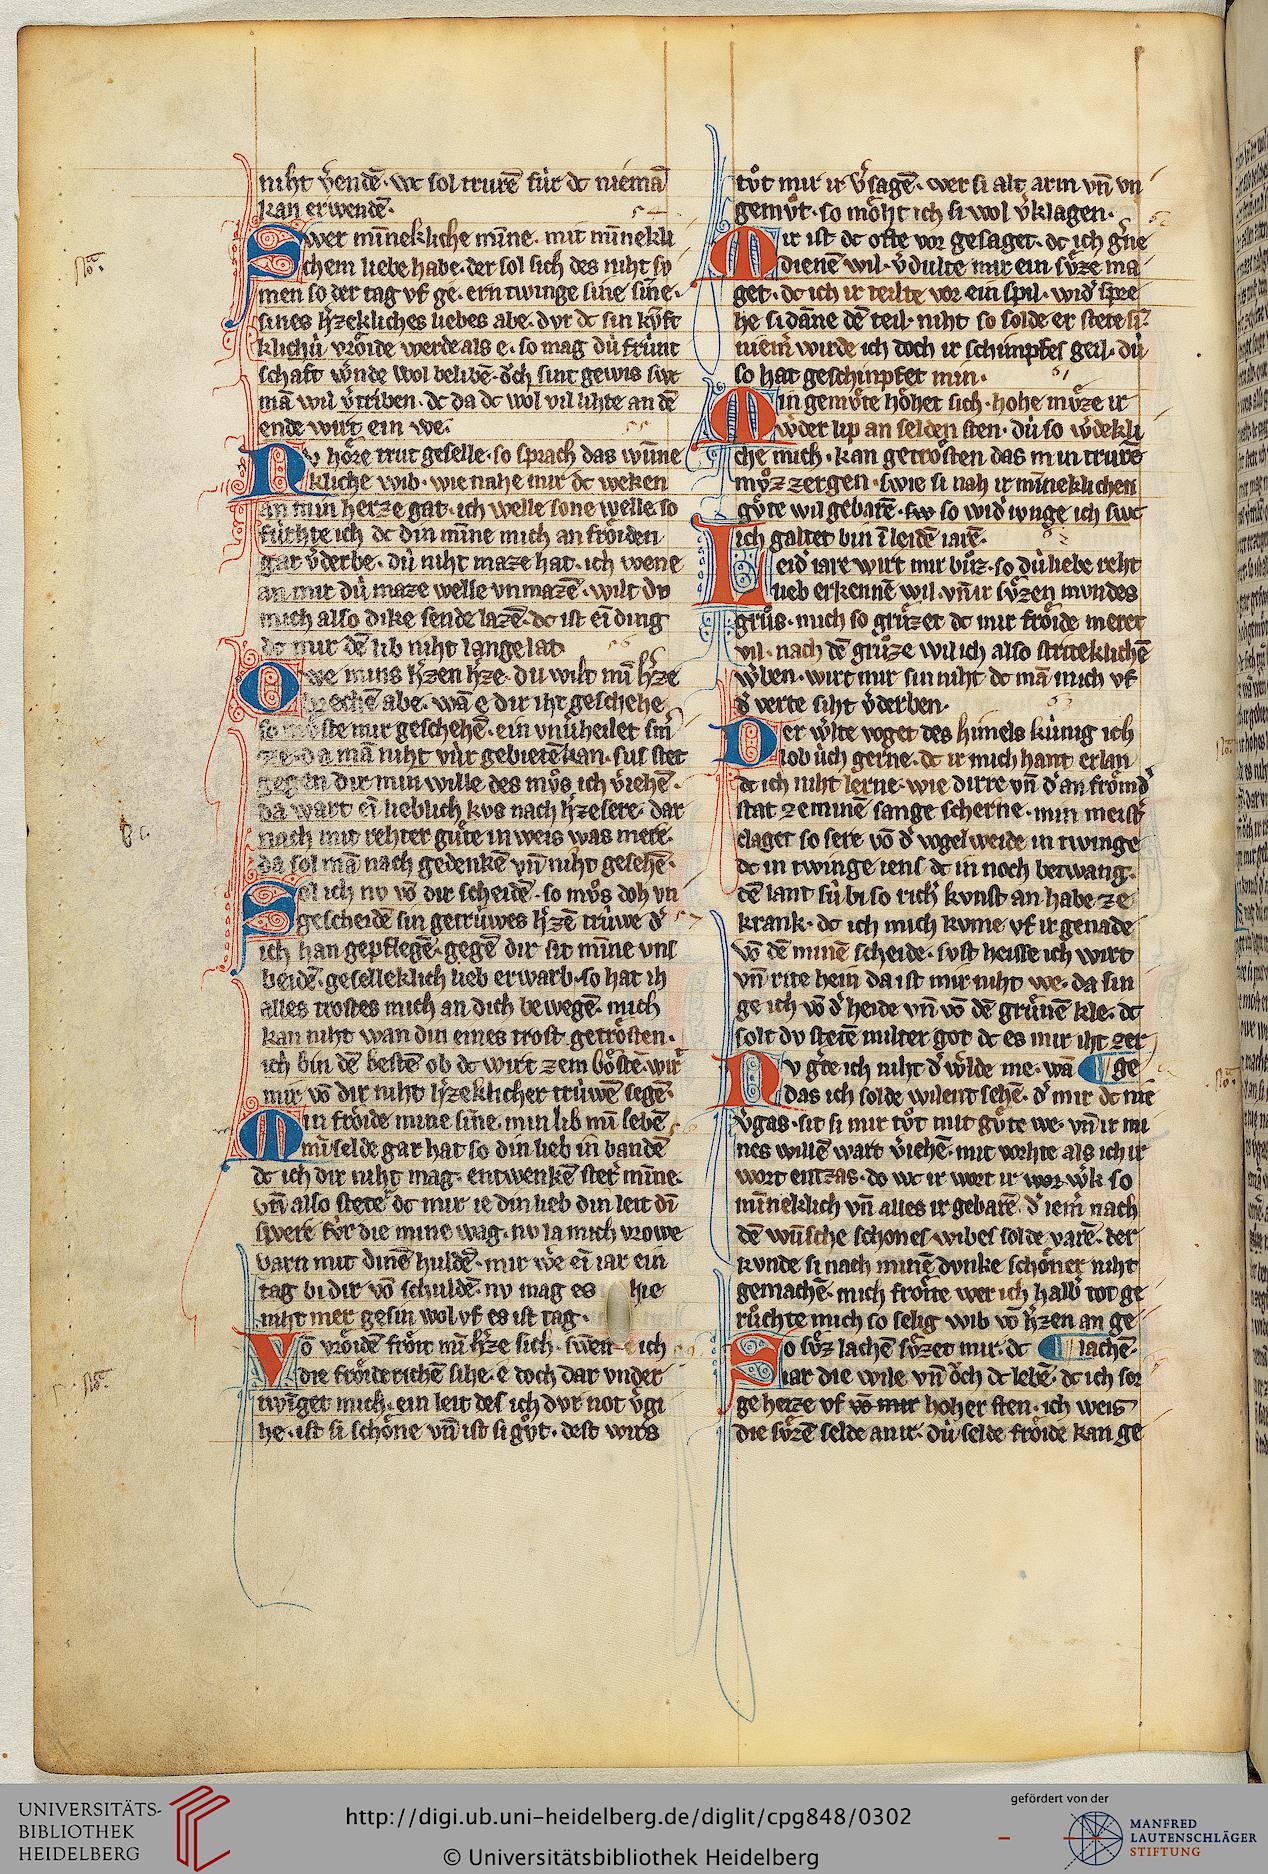 niht v̾endē· wc sol trurē für dc niemā
kan erwendē·
54
Swer minnekliche minne· mit minnekli
chem liebe habe· der sol sich des niht sv
men so der tag vf ge· ern twinge sine sīne·
sines h̾zekliches liebes abe· dvr dc sin kv̍ft
klichú vroͤide werde als e· so mag dú frúnt
schaft v̾nde wol belibē· oͮch sint gewis swc
mā wil v̾triben· dc da dc wol vil lihte an dē
ende wirt ein we·
55
Nv hoͤre trut geselle· so sprach das wūne
kliche wib· wie nahe mir dc weken
an min herze gat· ich welle sone welle so
fúrhte ich dc din mīne mich an froͤiden
gar v̾derbe· dú niht maze hat· ich wene
an mir dú maze welle vnmazē· wilt dv
mich also dike sende lazē· dc ist eī ding
dc mir dē lib niht lange lat
56
Owe mins h̾zen h̾ze· du wilt mī h̾ze
brechē abe· wā e dir iht geschehe
so mvͤste mir geschehē· ein vnúheilet smͬ
ze· da mā niht vúr gebietē kan· sus stet
gegen dir min wille des mvͦs ich v̾iehē·
da wart eī lieblich kvs nach h̾ze sere· dar
nach mit rehter guͤte in weis was mere·
da sol mā nach gedenkē vn̄ niht gesehē·
Sol ich nv vō dir scheidē· so mvͦs doh vn
gescheidē sin getrúwes h̾zē trúwe d̾ 57
ich han gepflegē· gegē dir sit mīne vns
beidē· geselleklich lieb erwarb· so hat ih
alles trostes mich an dich bewegē· mich
kan niht wan din eines trost getroͤsten·
ich bin dē bestē ob dc wirt zem boͤstē· wir
mir vō dir niht h̾zeklicher trúwē segē·
Min froͤide mine sīne· min lib mī lebē
mī selde gar hat so din lieb in bandē
dc ich dir niht mag· entwenkē stetͬ mīne·
vn̄ also stetē dc mir ie din lieb din leit dī
swere fúr die mine wag· nv la mich vrowe
varn mit dinē huldē· mir w̾e eī iar ein
tag bi dir vō schuldē· nv mag es hie
niht mer gesin wol vf es ist tag·
Vō vroͤidē froͤit mī h̾ze sich· swen ich
die froͤiderichē sihe· e doch dar vnder
twīget mich· ein leit des ich dvr not v̾gi
he· ist si schoͤne vn̄ ist si gvͦt· dest wus
tvͦt mir ir v̾sagē· wer si alt arm vn̄ vn
gemvͦt· so moͤht ich si wol v̾klagen·
Mir ist dc ofte vor gesaget· dc ich g̾ne
dienē wil· v̾dulte mir ein svͤze ma
get· dc ich ir teilte vor ein spil· wid̾ spre
he si dāne dē teil· niht so solde er stete sī·
niem̾ wirde ich doch ir schimpfes geil· dú
so hat geschinpfet min·
61
Min gemvͤte hoͤhet sich· hohe mvͤze ir
w̾der lip an selden sten· dú so w̾dekli
che mich· kan getroͤsten das min trure
mvͦz zergen· swie si nah ir mīneklichen
gvͤte wil gebarē· so wid̾ ivnge ich swc
ich galtet bin ī leidē iarē·
62
Leid̾ iare wirt mir bvͦz· so dú liebe reht
lieb erkennē wil· vn̄ ir svͤzen mvndes
grvͦs· mich so grvͤzet dc mir froͤide meret
vil· nach dē grvͦze wil ich also stritteklichē
w̾ben· wirt mir sin niht dc mā mich vf
d̾ verte siht v̾derben·
63
Der w̾lte voget des himels kúnig ich
lob úch gerne· dc ir mich hant erlan
dc ich niht lerne· wie dirre vn̄ d̾ an froͤmd̾
stat ze minē sange scherne· min meist̾
claget so sere vō d̾ vogelweide in twinge
dc in twinge iens dc in noch betwang·
dē lant sú bi so rich̾ kvnst an habe ze
krank· dc ich mich kvme vf ir genade
vō dē minē scheide· svst heisse ich wirt
vn̄ rite hein da ist mir niht we· da sin
ge ich vō d̾ heide vn̄ vō dē grúnē kle· dc
solt dv stetē milter got dc es mir iht zer
Nv g̾te ich niht d̾ w̾lde me· wā ge
das ich solde wilent sehē· d̾ mir dc nie
v̾gas· sit si mir tvͦt mit gvͤte we· vn̄ ir mi
nes willē wart v̾iehē· mit vorhte als ich ir
wort entzas· do wc ir wort ir wor w̾k so
mīneklich vn̄ alles ir gebarē· d̾ iem̾ nach
dē wūsche schones wibes solde varē· der
kvnde si nach minē dvnke schoͤner niht
gemachē· mich froͤite wer ich halb̾ tot ge
rvͦchte mich so selig wib vō h̾zen an ge
So svͤz lachē svͤzet mir· dc lachē·
iar die wile vn̄ oͮch dc lebē· dc ich sor
ge herze vf vō mir hoher sten· ich weis
die svͤzē selde an ir· dú selde froͤide kan ge
UNIVERSITÄTS-
BIBLIOTHEK
HEIDELBERG
http://digi.ub.uni-heidelberg.de/diglit/cpg848/0302
© Universitätsbibliothek Heidelberg
gefördert von der
MANFRED
LAUTENSCHLÄGER
STIFTUNG